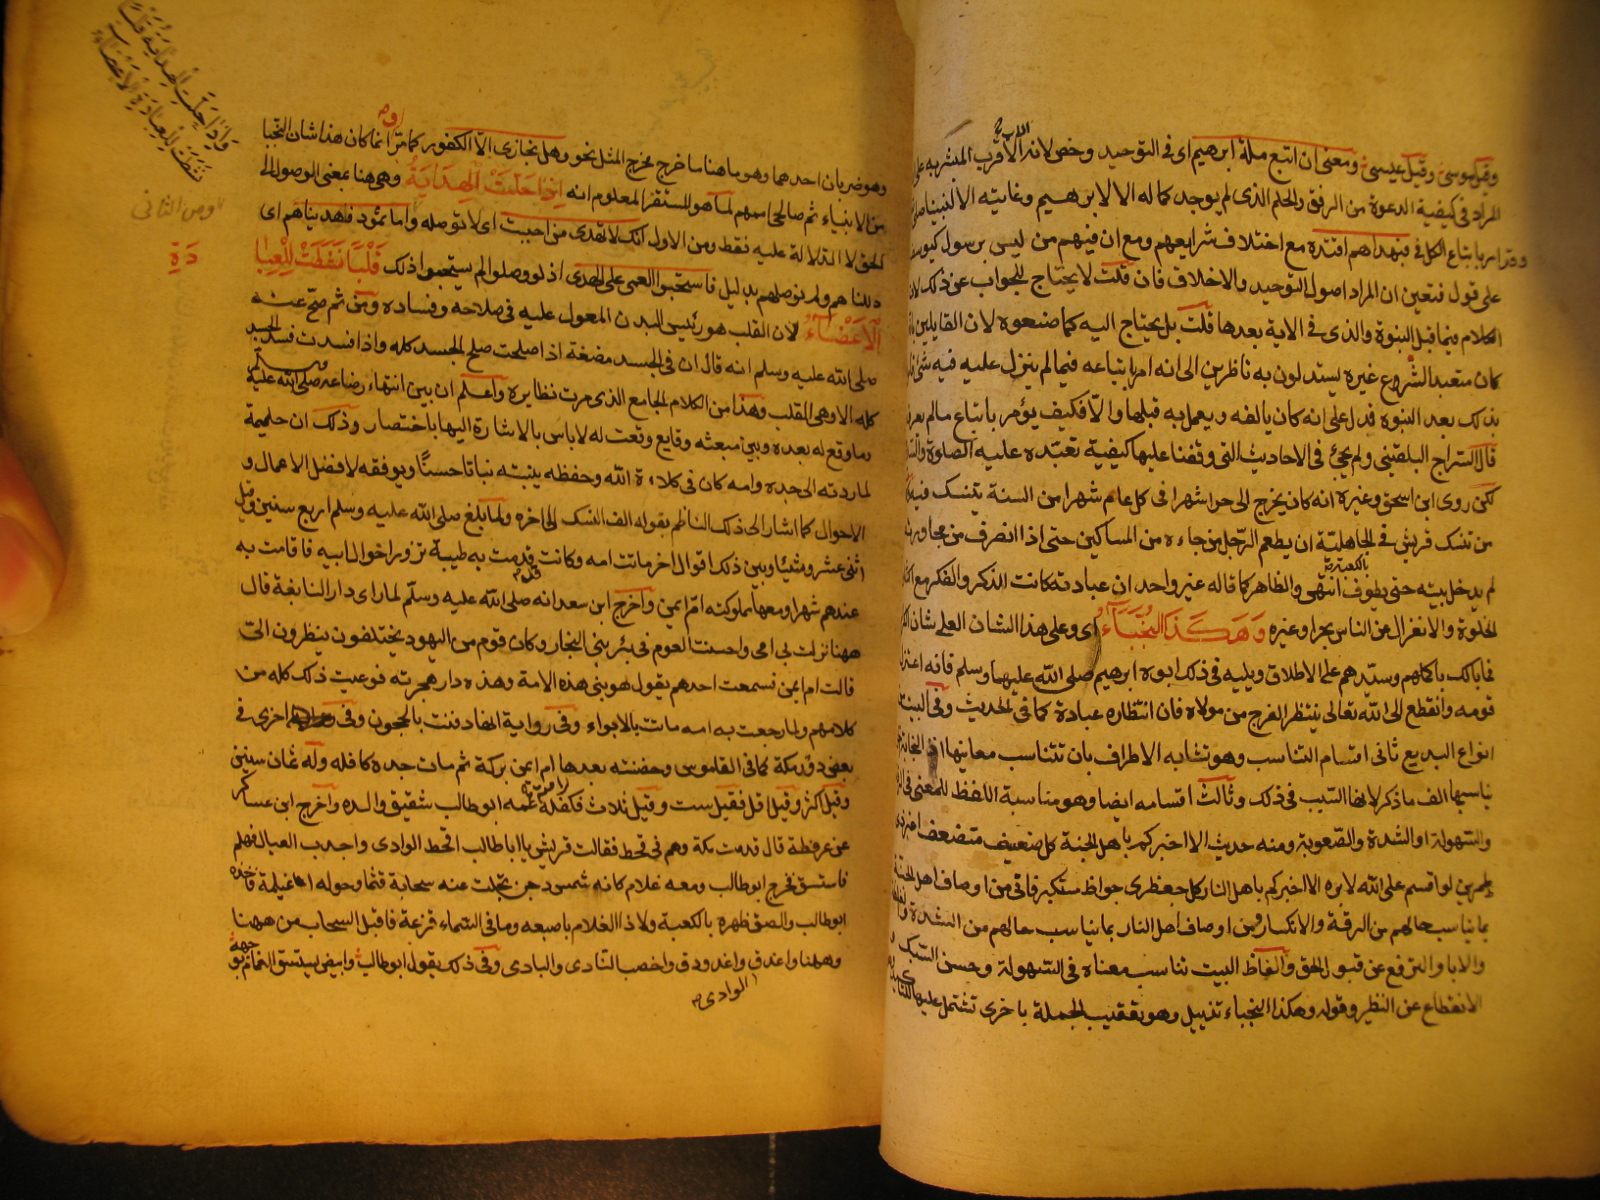 وقيل موسى وقيل عيسى ومعنى ان اتبع ملة ابرهيم اى فى التوحيد وخص لانه الاب الاقرب المبشر به على
المراد فى كيفية الدعوة من الرفق والحلم الذى لم يوجد كماله الا لابرهيم وغايته الا لنبينا صلى
وقد امر باتباع الكل فى فبهداهم اقتده مع اختلاف شرايعهم ومع ان فيهم من ليس برسول كيوسف
على قول فتعين ان المراد اصول التوحيد والاخلاق فان قلت لا يحتاج للجواب عن ذلك لان
الكلام فيما قبل النبوة والذى فى الاية بعدها قلت بل يحتاج اليه كما صنعوه لان القايلين بانه
كان متعبد الشروع غيره يستدلون به ناظرين الى انه امر باتباعه فيما لم ينزل عليه فيه شئ
بذلك بعد النبوه فدل على انه كان يالفه ويعمل به قبلها والا فكيف يؤمر باتباع مالم يعرف
قال السراج البلقينى ولم يجئ فى الاحاديث التى وقفنا عليها كيفية تعبده عليه الصلوة والسلام
لكن روى ابن اسحق وغيره انه كان يخرج الى حرا شهرا فى كل عام شهرا من السنة يتنسك فيه
من تنسك قريش فى الجاهلية ان يطعم الرجل من جاءه من المساكين حتى اذا انصرف من مجاورته
لم يدخل بيته حتى يطوف بالكعبة انتهى والظاهر كما قاله غير واحد ان عبادته كانت الذكر والفكر مع
الخلوة والانعزال عن الناس بحرا وغيره وَهَكَذَا النُّجَبَاءُ اى وعلى هذا الشان العلى شان
فما بالك باكملهم وسيدهم على الاطلاق ويليه فى ذلك ابوه ابرهيم صلى الله عليهما وسلم فانه اعتزل
قومه وانقطع الى الله تعالى ينتظر الفرج من مولاه فان انتظاره عبادة كما فى الحديث وفى البيت
انواع البديع ثانى اقسام التناسب وهو تشابه الاطراف بان تتناسب معانيها
يناسبها الف ما ذكر لانها السبب فى ذلك وثالث اقسامه ايضا وهو مناسبة اللفظ للمعنى فى
والسهولة او الشدة والصعوبة ومنه حديث الا اخبركم باهل الجنة كل ضعيف متضعف
لو اقسم على الله لابره الا اخبركم باهل النار كل جعظرى جواظ مستكبر فاتى من اوصاف اهل الجنة
بما يناسب حالهم من الرقة والانكسار ومن اوصاف اهل النار بما يناسب حالهم من الشدة
والابا والترفع عن قبول الحق والفاظ البيت تناسب معناه فى السهولة وحسن السبك
الانقطاع عن النظير وقوله وهكذا النجباء تذييل وهو تعقيب الجملة باخرى تشتمل عليها
وَإِذَا حَلَّتِ الْهِدَايَةُ قَلْبًا
نَشِطَتْ لِلْعِبَادَةِ الْأَعْضَاءُ
وهو ضربان احدهما وهو ما هنا ما خرج مخرج المثل نحو وهل نجازى الا الكفور كما مر انما كان هذا شان النجبا
من الانبياء ثم صالحى اممهم لما هو المستقر المعلوم انه إِذَا حَلَّتِ الْهِدَايَةُ وهى هنا بمعنى الوصول الى
الحق لا الدلالة عليه فقط ومن الاول انك لا تهدى من احببت اى لا توصله واما ثمود فهديناهم اى
ومن الثانى
دللناهم ولم نوصلهم بدليل فاستحبوا العمى على الهدى اذ لو وصلوا لم يستحبوا ذلك قَلْبًا نَشِطَتْ لِلْعِبَا
دَةِ
الْأَعْضَاءُ لان القلب هو رئيس البدن المعول عليه فى صلاحه وفساده ومن ثم صح عنه
صلى الله عليه وسلم انه قال ان فى الجسد مضغة اذا صلحت صلح الجسد كله واذا فسدت فسد الجسد
كله الا وهى القلب وهذا من الكلام الجامع الذى مرت نظايره واعلم ان بين انتهاء رضاعه صلى الله عليه وسلم
وما وقع له بعده وبين مبعثه وقايع وقعت له لا باس بالاشارة اليها باختصار وذلك ان حليمة
لما ردته الى جده وامه كان فى كلاءة الله وحفظه ينبته نباتا حسنا ويوفقه لافضل الاعمال و
الاحوال كما اشار الى ذلك الناظم بقوله الف النسك الى اخره ولما بلغ صلى الله عليه وسلم اربع سنين وقيل
اثنى عشر وشيئا وبين ذلك اقوال اخر ماتت امه وكانت قدمت به طيبة تزور اخوال ابيه فاقامت به
عندهم شهرا ومعها مملوكته ام ايمن واخرج ابن سعد انه صلى الله عليه وسلم لما راى دار النابغة قال
ههنا نزلت بى امى واحسنت العوم فى بئر بنى النجار وكان قوم من اليهود يختلفون ينظرون الى
قالت ام ايمن فسمعت احدهم يقول هو نبى هذه الامة وهذه دار هجرته فوعيت ذلك كله من
كلامهم ولما رجعت به امه ماتت بالابواء وفى رواية انها دفنت بالحجون وفى اخرى فى
بعض دور مكة كما فى القاموس وحضنته بعدها ام ايمن بركة ثم مات جده كافله وله ثمان سنين
وقيل اكثر وقيل اقل فقيل ست وقيل ثلاث فكفله عمه ابو طالب شقيق والده واخرج ابن عساكر
عن عرفطة قال قدمت مكة وهم فى قحط فقالت قريش يا ابا طالب اقحط الوادى واجدب العيال فهلم
فاستسق فخرج ابو طالب ومعه غلام كانه شمس دجن تجلت عنه سحابة قتما وحوله اغيلمة فاخذه
ابو طالب والصق ظهره بالكعبة ولاذ الغلام باصبعه وما فى السماء قزعة فاقبل السحاب من ههنا
وههنا واغدق واغدودق واخصب النادى والبادى وفى ذلك يقول ابو طالب وابيض يستسقى الغمام بوجهه
الوادى